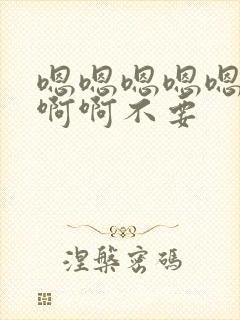 嗯嗯嗯嗯嗯
啊啊不要
涅槃密码